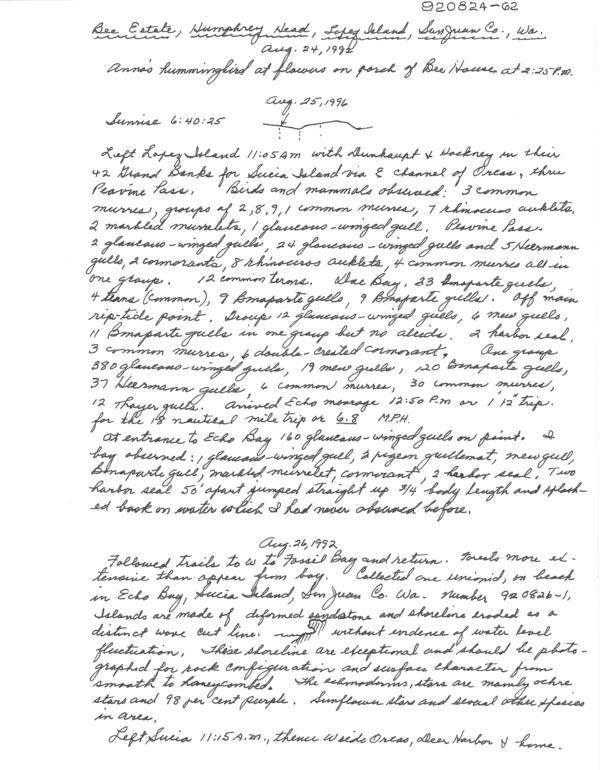 920824-62
Bee Estate, Humphrey Head, Lopez Island, San Juan Co., Wa.
Aug. 24, 1992
Anna's hummingbird at flowers on porch of Bee House at 2:25 P.M.
Aug. 25, 1996
Sunrise 6:40:25
Left Lopez Island 11:05 AM with Dunhaupt & Hockney in their
42 Grand Banks for Sucia Island via E channel of Orcas, thru
Peavine Pass. Birds and mammals observed: 3 common
murres, groups of 2, 8, 9, 1 common murres, 7 rhinoceros auklets,
2 marbled murrelets, 1 glaucous-winged gull. Peavine Pass.
2 glaucous-winged gulls, 24 glaucous-winged gulls and 5 Heermann
gulls, 2 cormorants, 8 rhinoceros auklets, 4 common murres all in
one group. 12 common terns. Doe Bay, 33 Bonaparte gulls,
4 terns (common), 9 Bonaparte gulls, 9 Bonaparte gulls. Off main
rip-tide point. Group 12 glaucous-winged gulls, 6 mew gulls,
11 Bonaparte gulls in one group but no alcids. 2 harbor seal,
3 common murres, 6 double-crested cormorant. One group
380 glaucous-winged gulls, 19 mew gulls, 120 Bonaparte gulls,
37 Heermann gulls, 6 common murres, 30 common murres,
12 Thayer gulls. Arrived Echo 12:50 P.M or 1' 12" trip.
for the 18 nautical mile trip or 6.8 M.P.H.
At entrance to Echo Bay 160 glaucous-winged gulls on point. I
bay observed: 1 glaucous-winged gull, 2 pigeon guillemot, mew gull,
Bonaparte gull, marbled murrelet, cormorant, 2 harbor seal. Two
harbor seal 50' apart jumped straight up 3/4 body length and splash-
ed back on water which I had never observed before.
Aug. 26, 1992
Followed trails to W to Fossil Bay and return. Forests more ex-
tensive than appear from bay. Collected one unionid, on beach
in Echo Bay, Sucia Island, San Juan Co. Wa. Number 920826-1.
Islands are made of deformed sandstone and shoreline eroded as a
distinct wave cut line. without evidence of water level
fluctuation. These shoreline are exceptional and should be photo-
graphed for rock configuration and surface character from
smooth to honeycombed. The echinoderms, stars are mainly ochre
stars and 98 per cent purple. Sunflower stars and several other species
in area.
Left Sucia 11:15 A.M., thence W side Orcas, Deer Harbor & home.